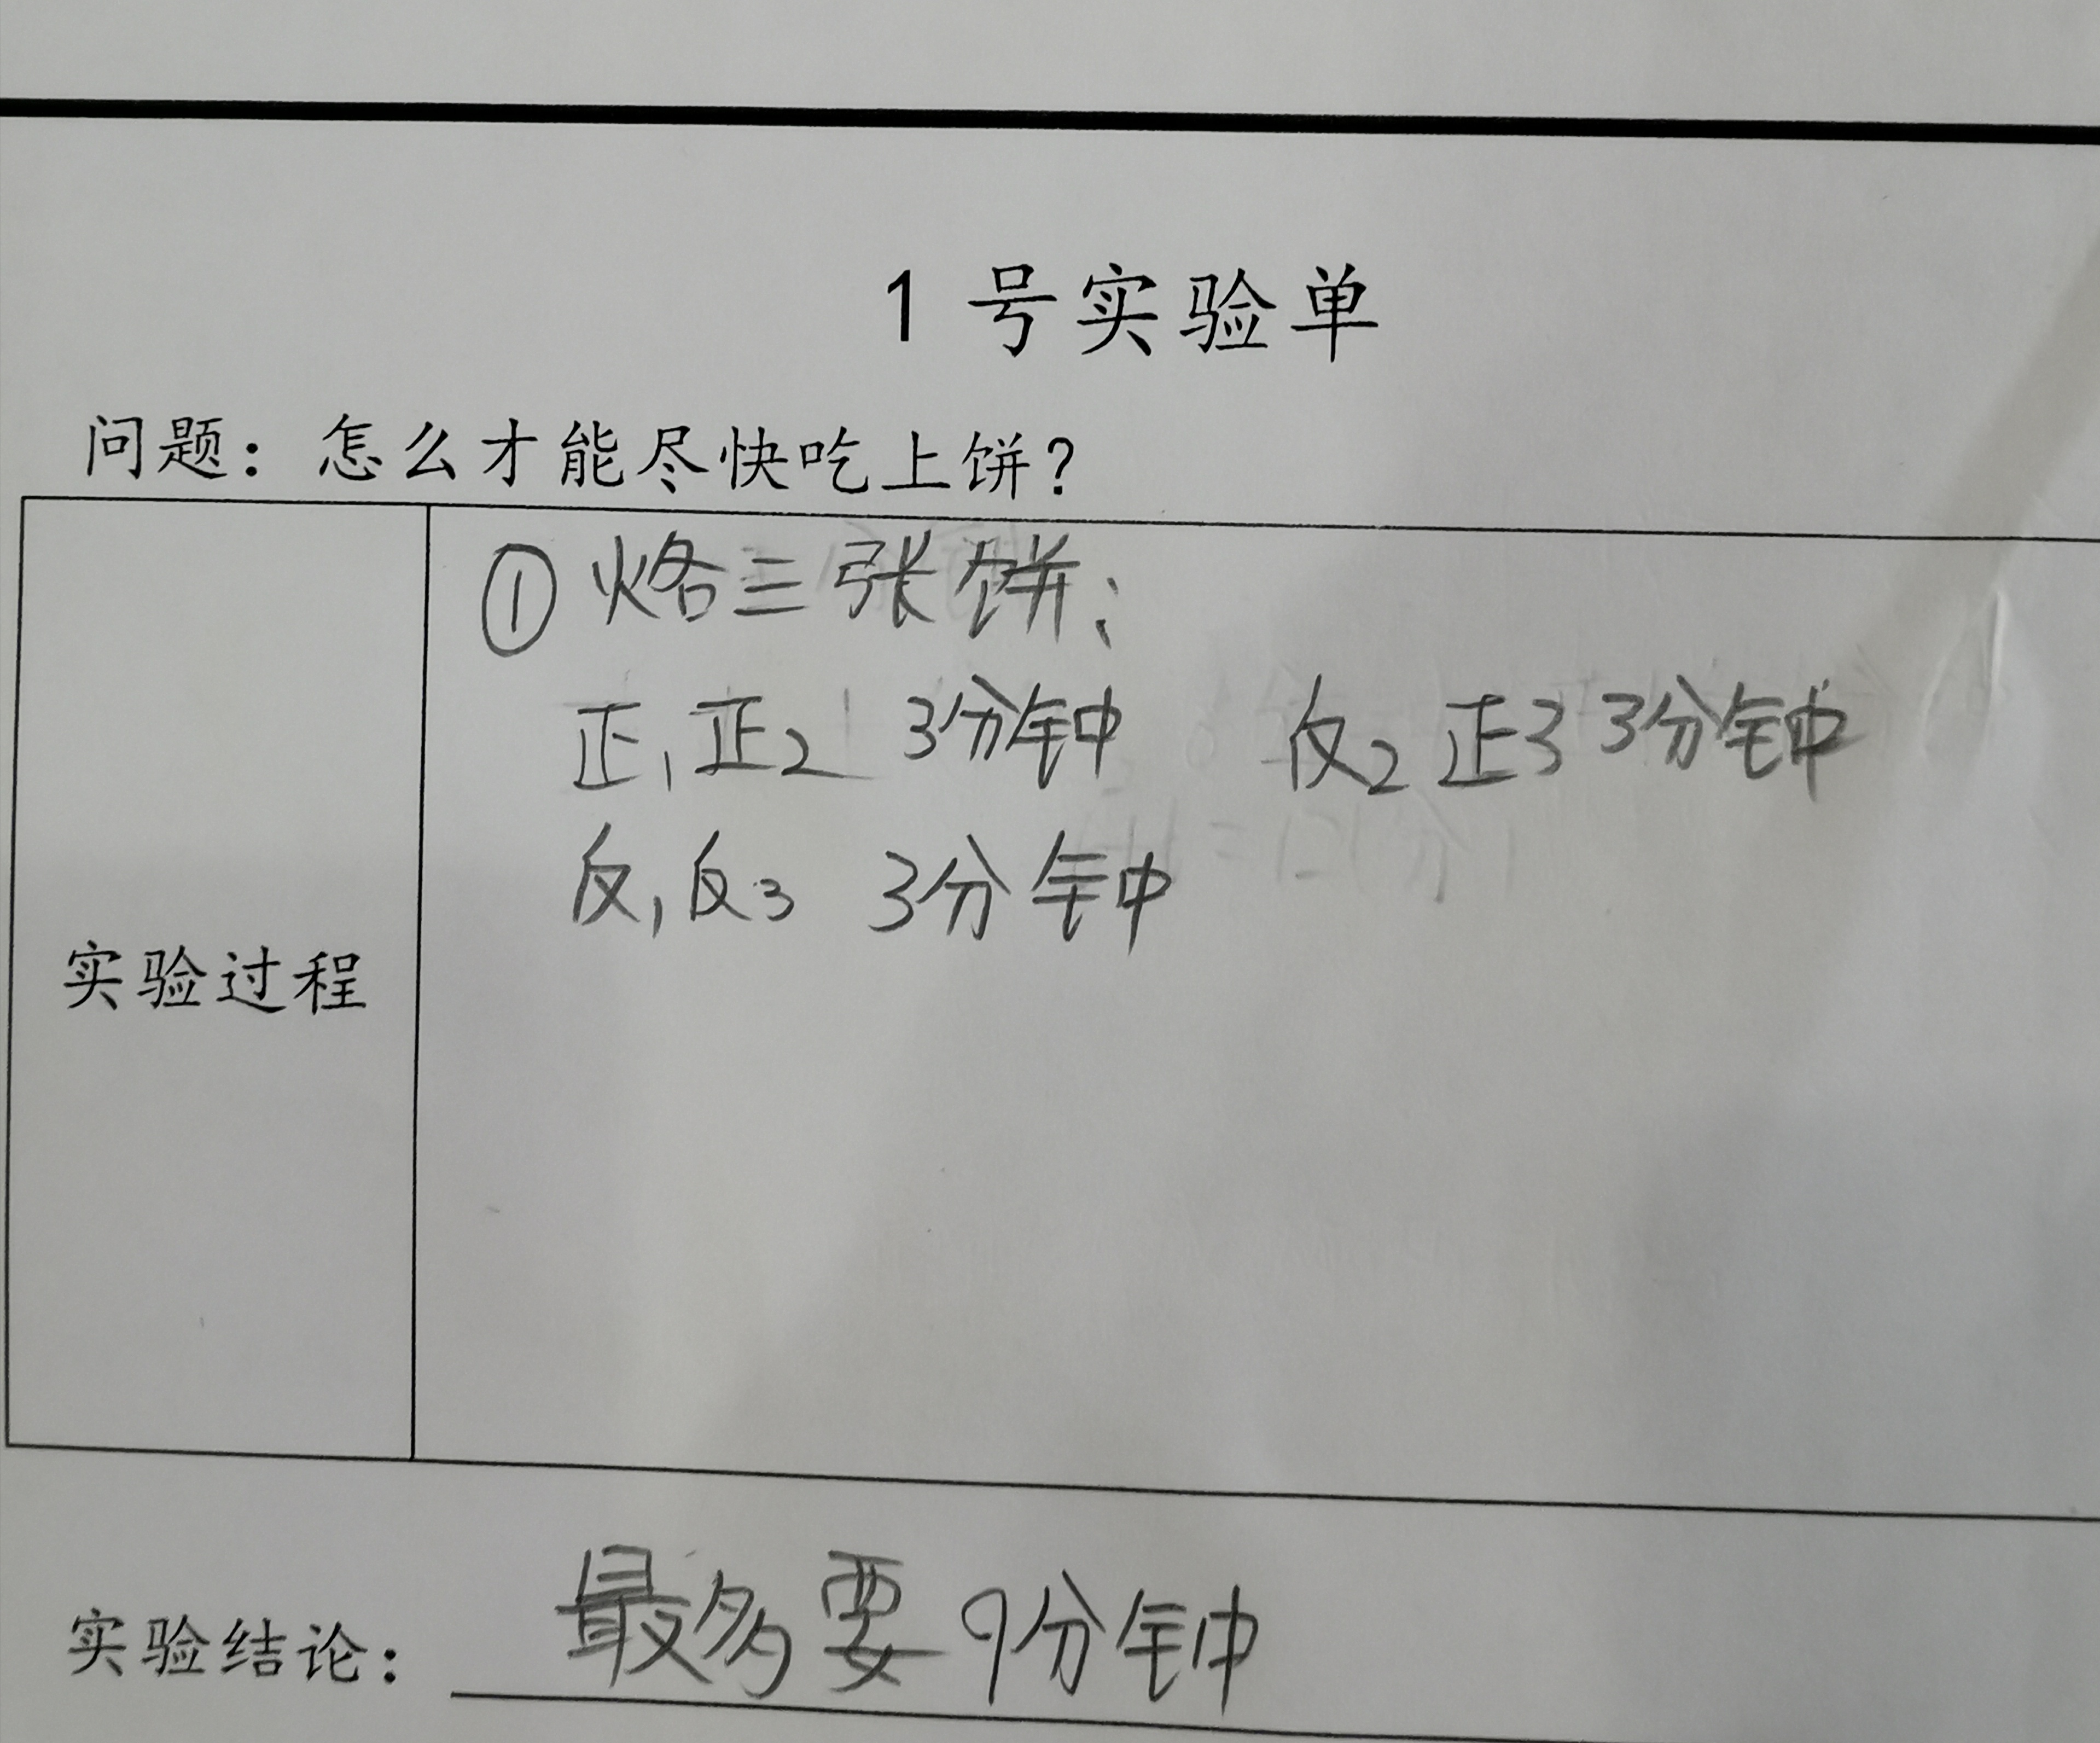 1 号实验单
问题：怎么才能尽快吃上饼？
①烙三张饼：
正1正2 3分钟 反2 正3 3分钟
反1反3 3分钟
实验过程
实验结论：最多要9分钟